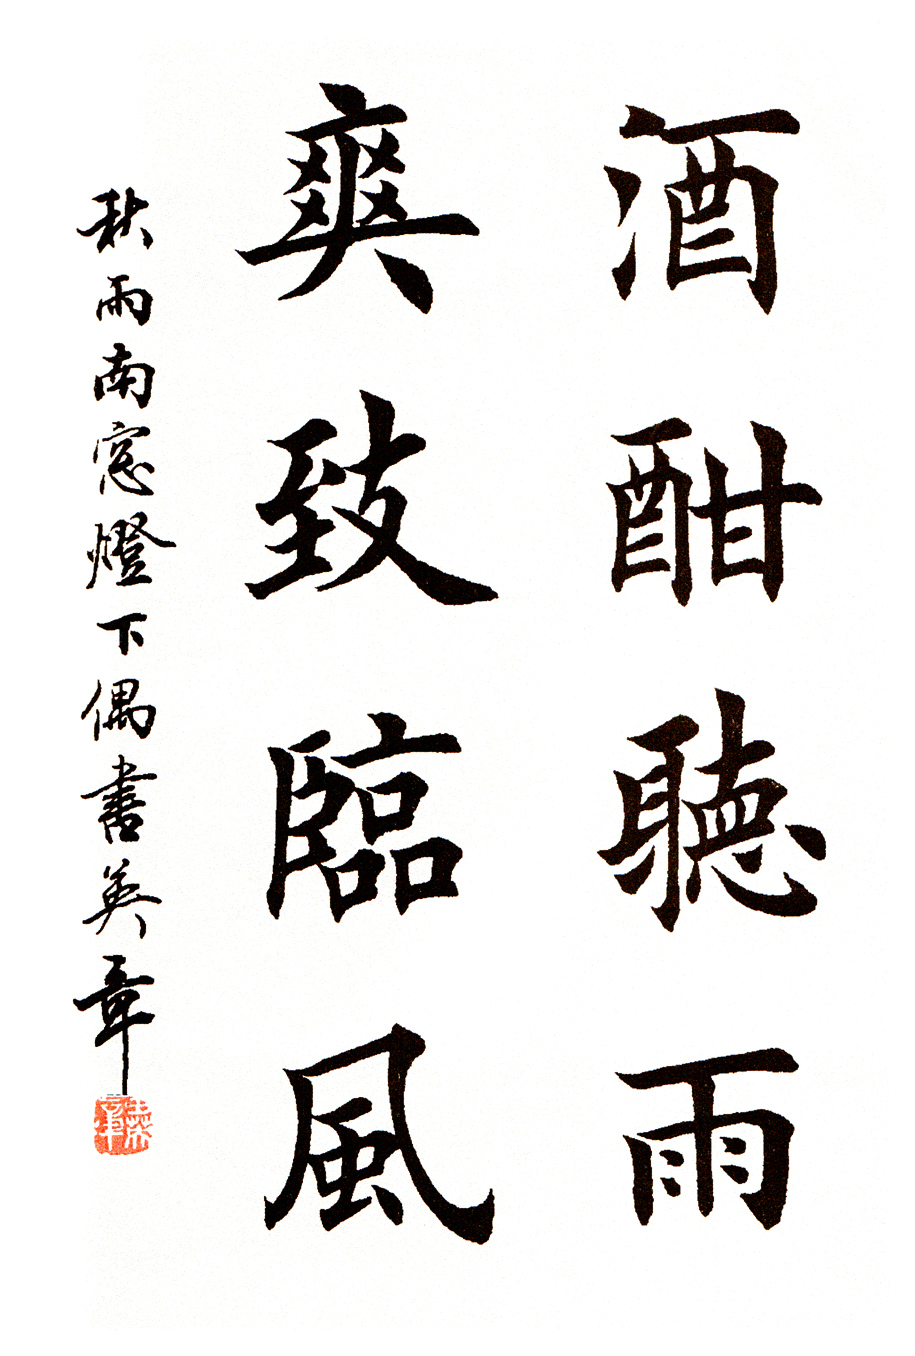 酒酣聽雨
爽致臨風
秋雨南窓燈下偶書英章